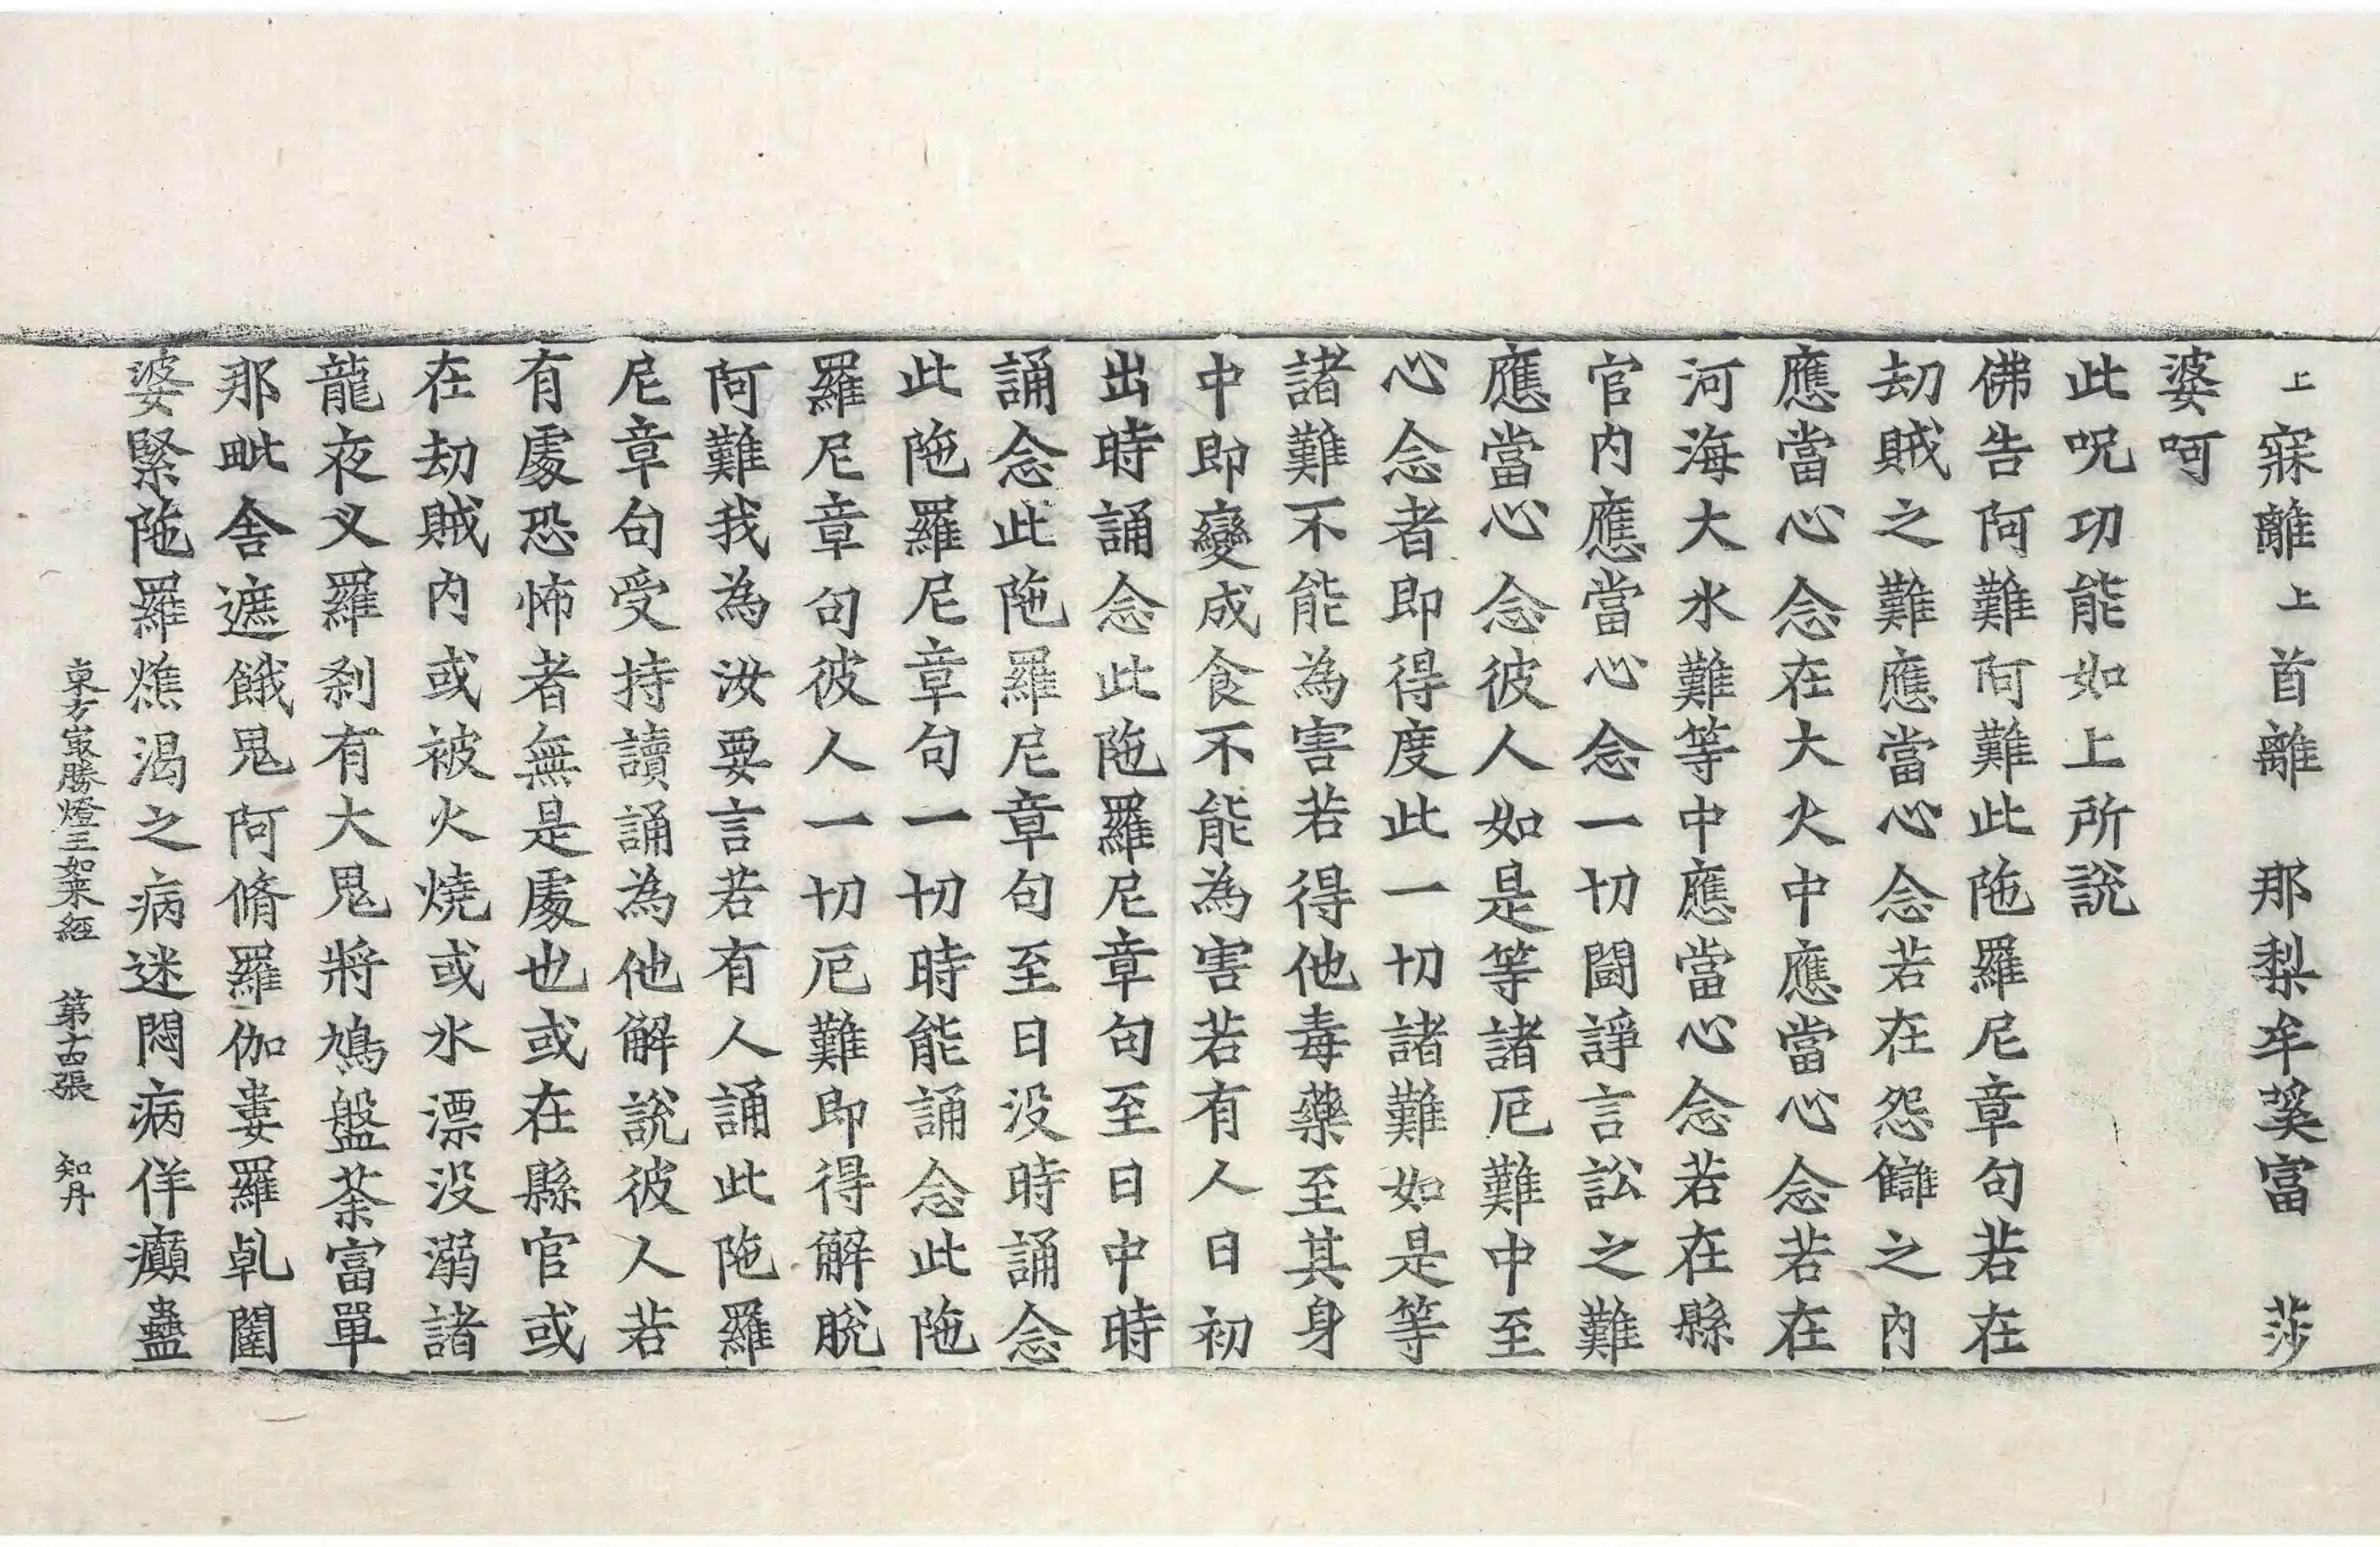 上寐離上首離　那梨牟蓃富　莎
婆呵
此呪功能如上所說
佛告阿難阿難此陁羅尼章句若在
劫賊之難應當心念若在怨讎之內
應當心念在大火中應當心念若在
河海大水難等中應當心念若在縣
官內應當心念一切鬪諍言訟之難
應當心念彼人如是等諸厄難中至
心念者即得度此一切諸難如是等
諸難不能為害若得他毒藥至其身
中即變成食不能為害若有人日初
出時誦念此陁羅尼章句至日中時
誦念此陁羅尼章句至日没時誦念
此陁羅尼章句一切時能誦念此陁
羅尼章句彼人一切厄難即得解脫
阿難我為汝要言若有人誦此陁羅
尼章句受持讀誦為他解說彼人若
有處恐怖者無是處也或在縣官或
在劫賊內或被火燒或水漂没溺諸
龍夜叉羅剎有大鬼將鳩盤荼富單
那毗舍遮餓鬼阿脩羅伽婁羅乹闥
婆緊陁羅燋渴之病迷悶病佯癲蠱
東方㝡勝燈王如来經　第十四張　知丹